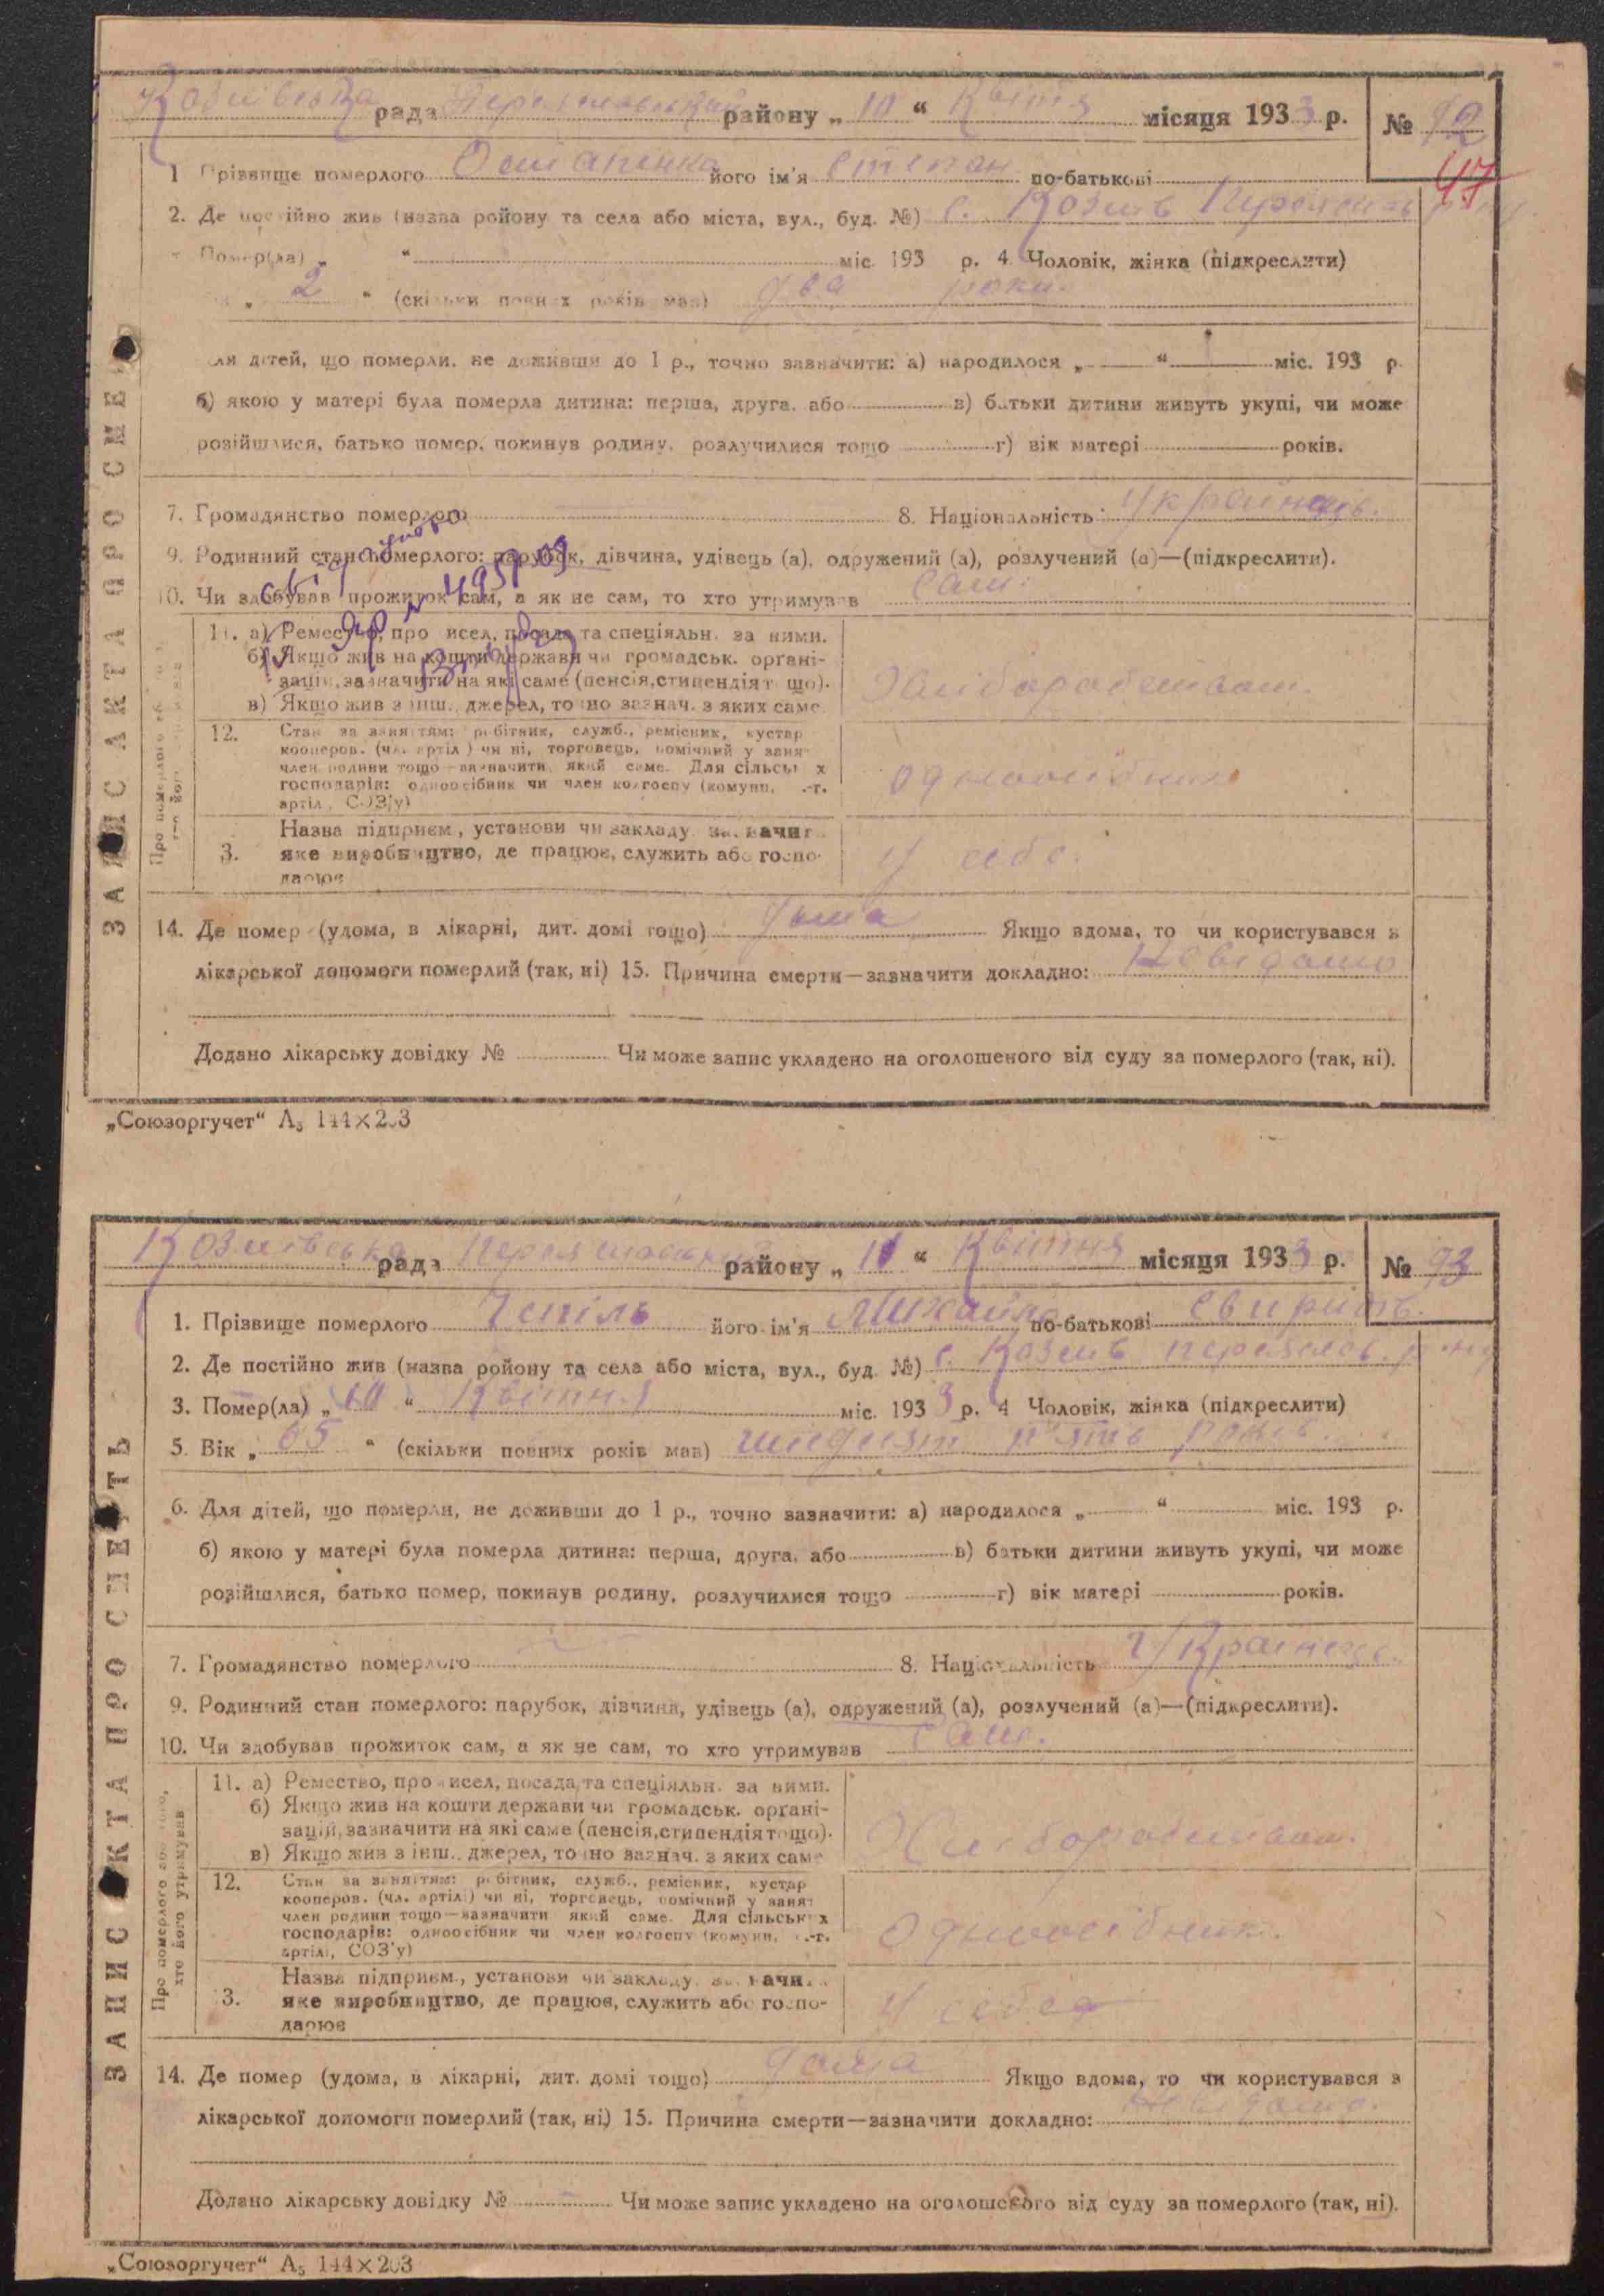 рада району „ 10 “ місяця 1933 р. № 92
47
1 Прізвище померлого його ім'я Степан по-батькові
2. Де постійно жив (назва ройону та села або міста, вул., буд. №) с. Козлів
Помер(ла) „ “ міс. 193 р. 4. Чоловік, жінка (підкреслити)
„ 2 “ (скільки повних років мав) два роки.
для дітей, що померли, не доживши до 1 р., точно зазначити: а) народилося „ “ міс. 193 р.
б) якою у матері була померла дитина: перша, друга, або в) батьки дитини живуть укупі, чи може
розійшлися, батько помер, покинув родину, розлучилися тощо г) вік матері років.
7. Громадянство померлого 8. Національність
9. Родинний стан померлого: парубок, дівчина, удівець (а), одружений (а), розлучений (а)—(підкреслити).
10. Чи здобував прожиток сам, а як не сам, то хто утримував сам.
11. а) Ремество, про исел, посада та спеціяльн. за ними.
б) Якщо жив на кошти держави чи громадськ. орґані-
зацій, зазначити на які саме (пенсія, стипендія т що).
в) Якщо жив з інш., джерел, то чно зазнач. з яких саме
12. Стан за заняттям: робітник, служб., ремісник, кустар
кооперов. (чл. артілі) чи ні, торговець, помічний у заня
член родини тощо—зазначити який саме. Для сільськ х
господарів: одноосібник чи член колгоспу (комуни, .-г.
артілі, СОЗ'у)
одноосібник
Назва підприєм., установи чи закладу, зазначит
3. яке виробництво, де працює, служить або госпо-
дарює
у себе.
14. Де помер (удома, в лікарні, дит. домі тощо) дома Якщо вдома, то чи користувався з
лікарської допомоги померлий (так, ні) 15. Причина смерти—зазначити докладно: Невідомо
Додано лікарську довідку № Чи може запис укладено на оголошеного від суду за померлого (так, ні).
ЗАПИС АКТА ПРО СМЕ
„Союзоргучет“ А₅ 144×203
Козлівська рада району „ 11 “ Квітня місяця 1933 р. № 93
1. Прізвище померлого його ім'я Михайло по-батькові Свирид.
2. Де постійно жив (назва ройону та села або міста, вул., буд. №) с. Козлів
3. Помер(ла) „ 10 “ Квітня міс. 1933 р. 4 Чоловік, жінка (підкреслити)
5. Вік „ 65 “ (скільки повних років мав) п'ять років.
6. Для дітей, що померли, не доживши до 1 р., точно зазначити: а) народилося „ “ міс. 193 р.
б) якою у матері була померла дитина: перша, друга, або в) батьки дитини живуть укупі, чи може
розійшлися, батько помер, покинув родину, розлучилися тощо г) вік матері років.
7. Громадянство померлого 8. Національність Українець.
9. Родинний стан померлого: парубок, дівчина, удівець (а), одружений (а), розлучений (а)—(підкреслити).
10. Чи здобував прожиток сам, а як не сам, то хто утримував сам.
11. а) Ремество, про исел, посада та спеціяльн. за ними.
б) Якщо жив на кошти держави чи громадськ. орґані-
зацій, зазначити на які саме (пенсія, стипендія тощо).
в) Якщо жив з інш., джерел, то чно зазнач. з яких саме
12. Стан за заняттям: робітник, служб., ремісник, кустар
кооперов. (чл. артілі) чи ні, торговець, помічний у занят
член родини тощо—зазначити який саме. Для сільськ х
господарів: одноосібник чи член колгоспу (комуни, .-г.
артілі, СОЗ'у)
Одноосібник.
Назва підприєм., установи чи закладу, зазначи
3. яке виробництво, де працює, служить або госпо-
дарює
У себе
14. Де помер (удома, в лікарні, дит. домі тощо) дома Якщо вдома, то чи користувався з
лікарської допомоги померлий (так, ні) 15. Причина смерти—зазначити докладно: Невідомо.
Додано лікарську довідку № Чи може запис укладено на оголошеного від суду за померлого (так, ні).
Про померлого або того, хто його утримував
ЗАПИС АКТА ПРО СМЕРТЬ
„Союзоргучет“ А₅ 144×203